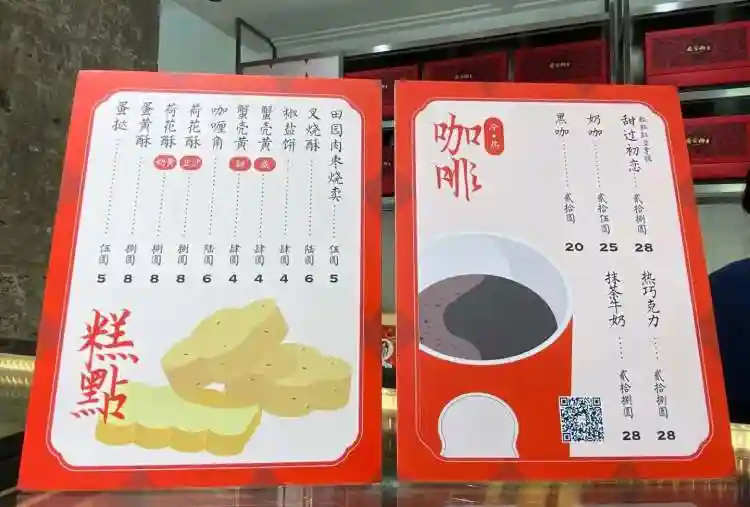 田园肉枣烧卖 伍圆 5
叉烧酥 陆圆 6
椒盐饼 肆圆 4
蟹壳黄 咸 肆圆 4
蟹壳黄 甜 肆圆 4
咖喱角 陆圆 6
荷花酥 豆沙 捌圆 8
荷花酥 奶黄 捌圆 8
蛋黄酥 捌圆 8
蛋挞 伍圆 5
糕點
咖啡
冷·热
甜过初恋 贰拾捌圆 28
奶咖 贰拾伍圆 25
黑咖 贰拾圆 20
热巧克力 贰拾捌圆 28
抹茶牛奶 贰拾捌圆 28